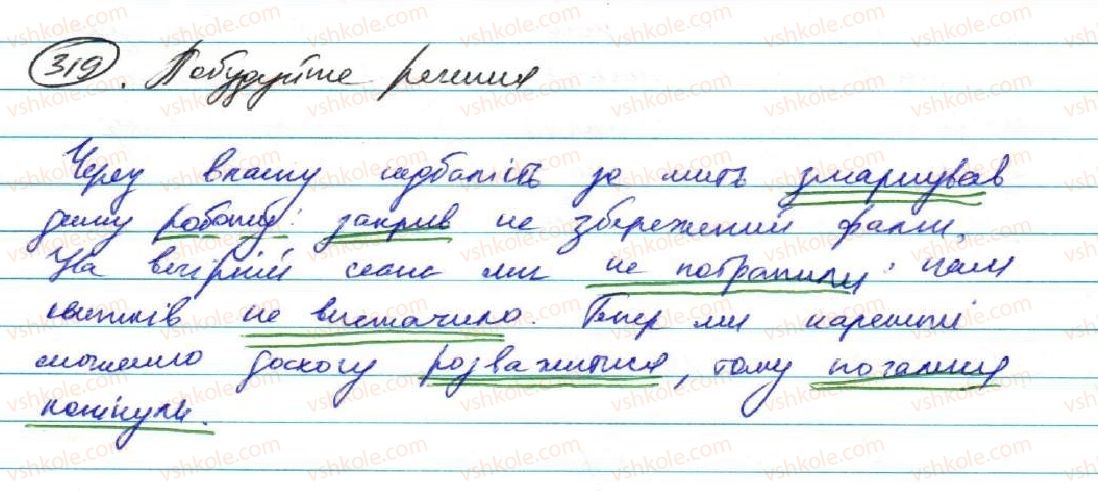 319. Побудуйте речення
Через власну недбалість за мить змарнував
денну роботу: закрив не збережений файл.
На вечірній сеанс ми не потрапили: нам
квитків не вистачило. Тепер ми нарешті
зможемо досхочу розважитися, тому почалися
канікули.